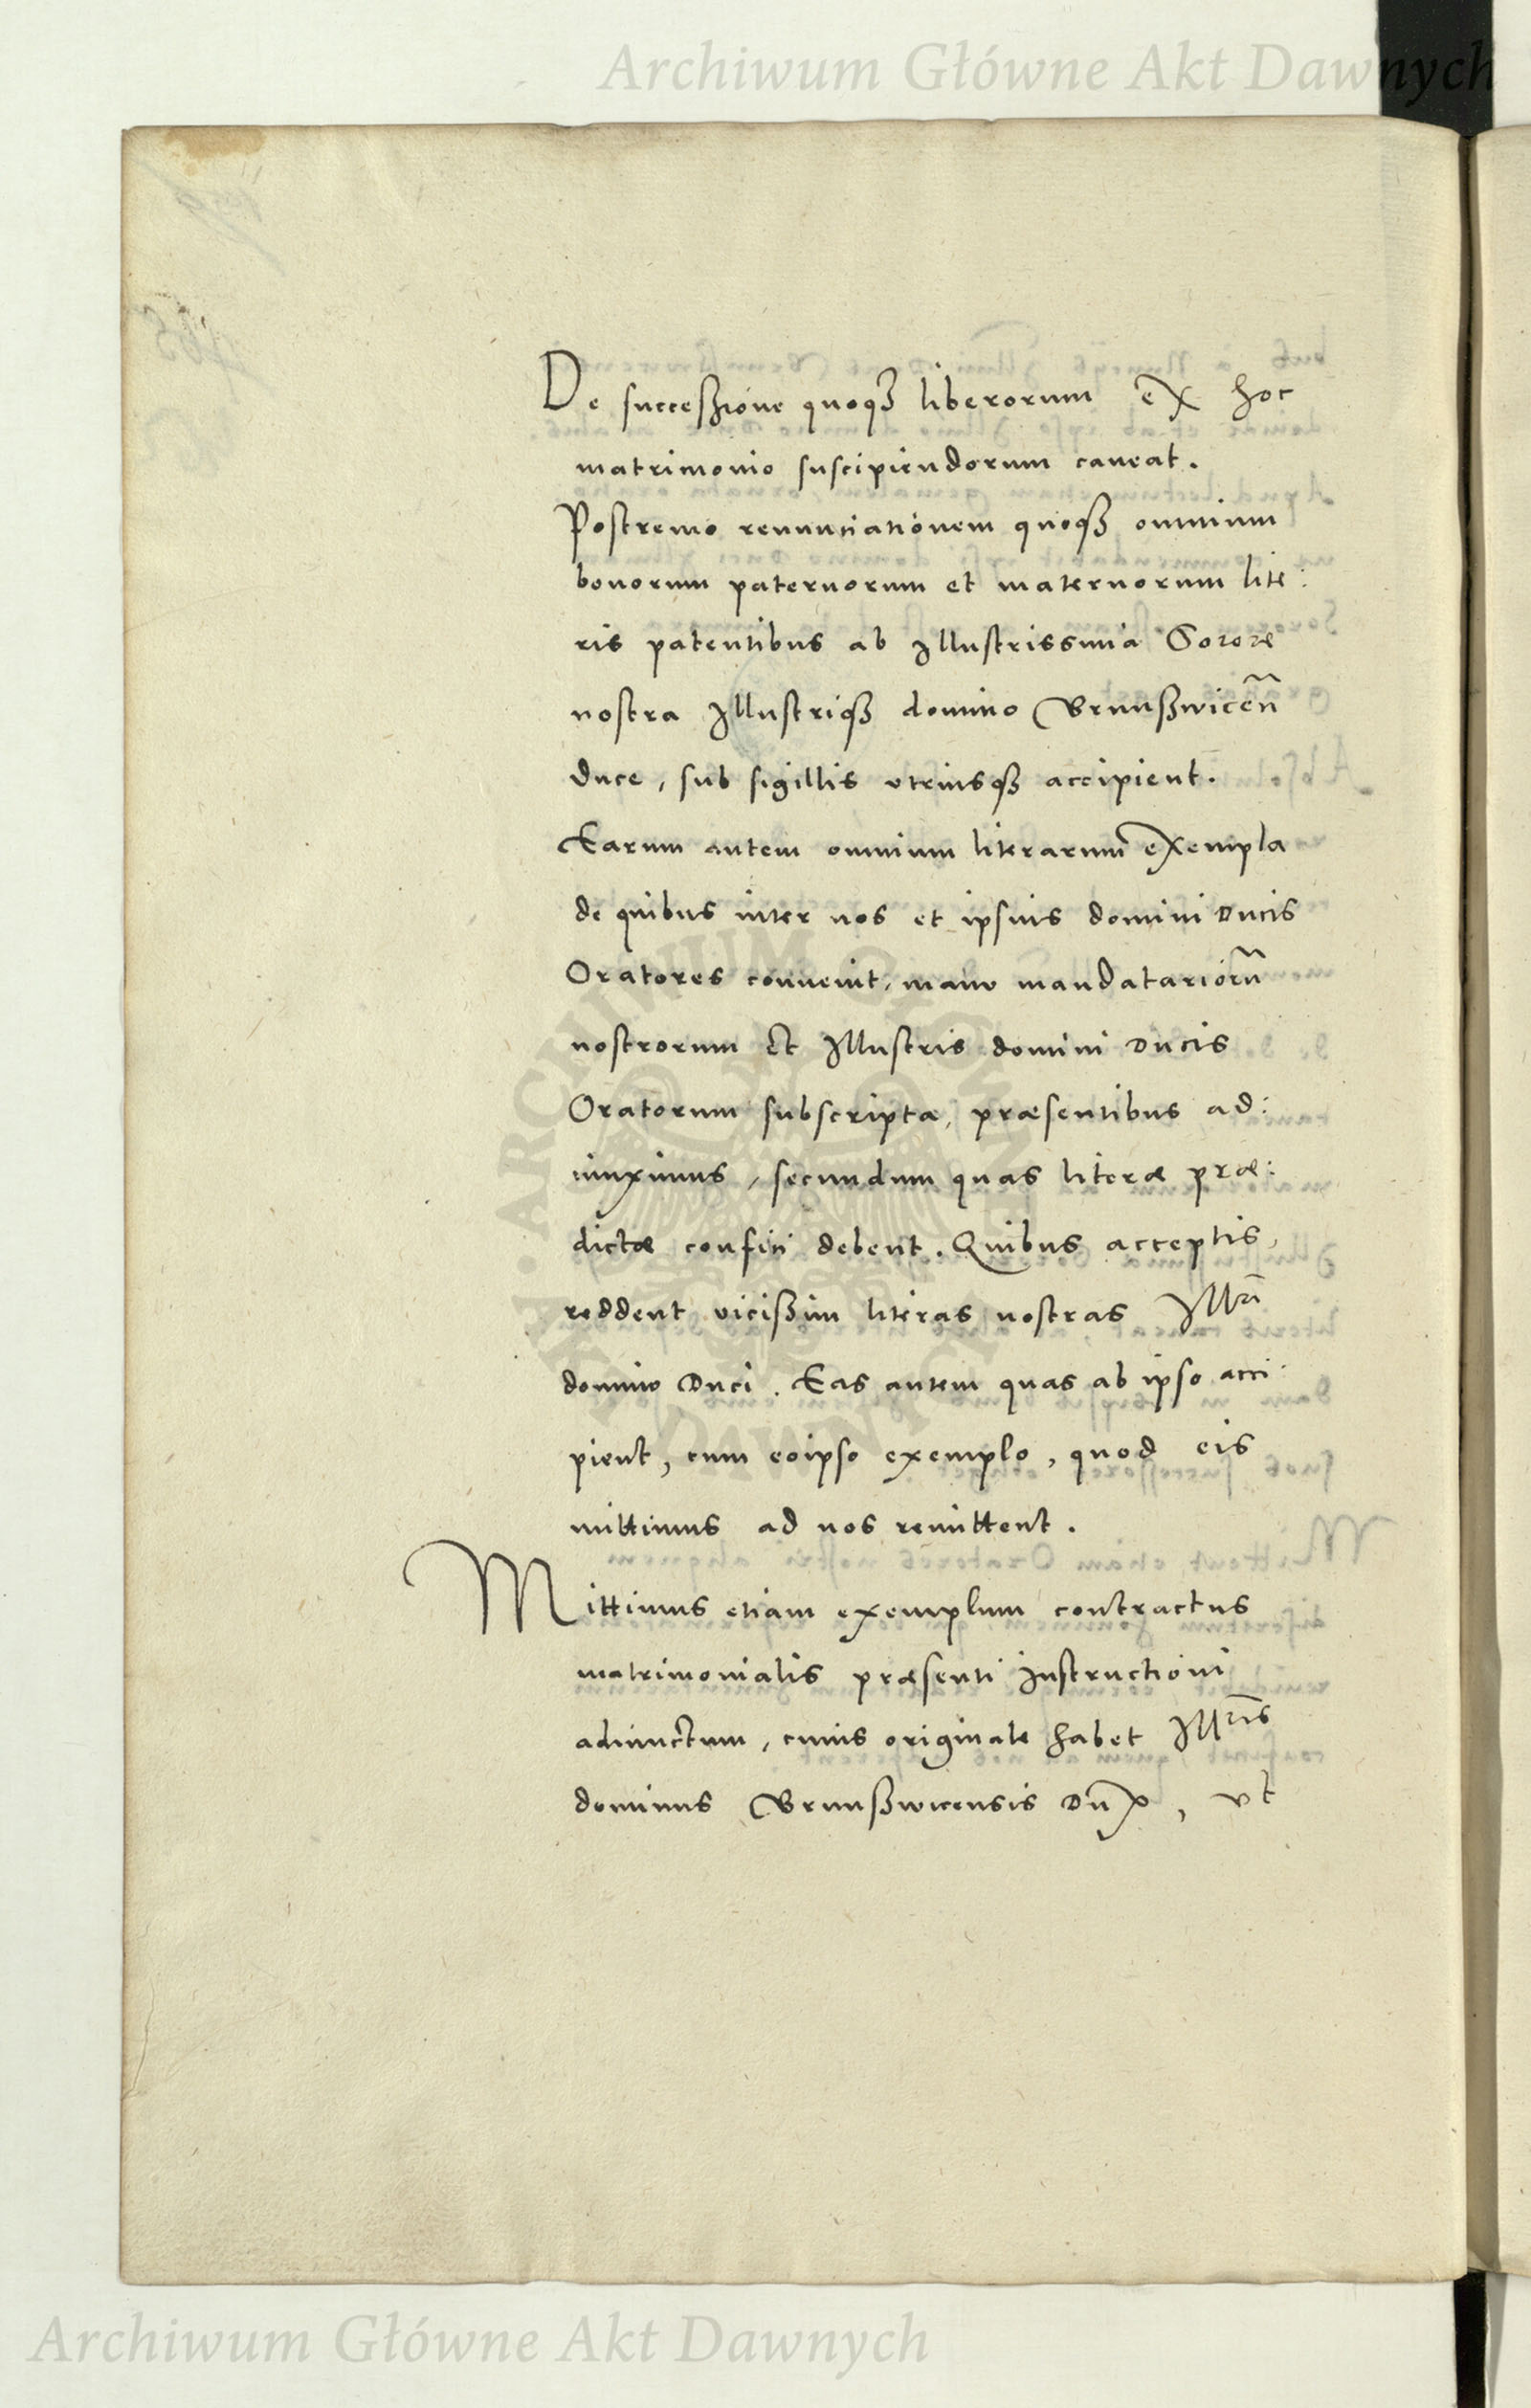 Archiwum Główne Akt Dawnych
De successione quoqȝ liberorum ex hoc
matrimonio suscipiendorum caveat.
Postremo renunciationem quoqȝ omnium
bonorum paternorum et maternorum lite:
ris patentibus ab Illustrissima Sorore
nostra Illustriqȝ domino Brunßwiceñ
duce, sub sigillis vtriusqȝ accipient.
Earum autem omnium literarum exempla
de quibus inter nos et ipsius domini Ducis
Oratores convenit, manu mandatariorũ
nostrorum Et Illustris domini Ducis
Oratorum subscripta, præsentibus ad:
iunximus, secundum quas literæ præ:
dictæ confici debent. Quibus acceptis,
reddent vicißim literas nostras Illri
domino Duci. Eas autem quas ab ipso acci:
pient, cum eoipso exemplo, quod eis
mittimus ad nos remittent.
Mittimus etiam exemplum contractus
matrimonialis præsenti Instructioni
adiunctum, cuius originale habet Illris
dominus Brunßwicensis Dux, vt
ARCHIWUM GŁÓWNE AKT DAWNYCH
Archiwum Główne Akt Dawnych